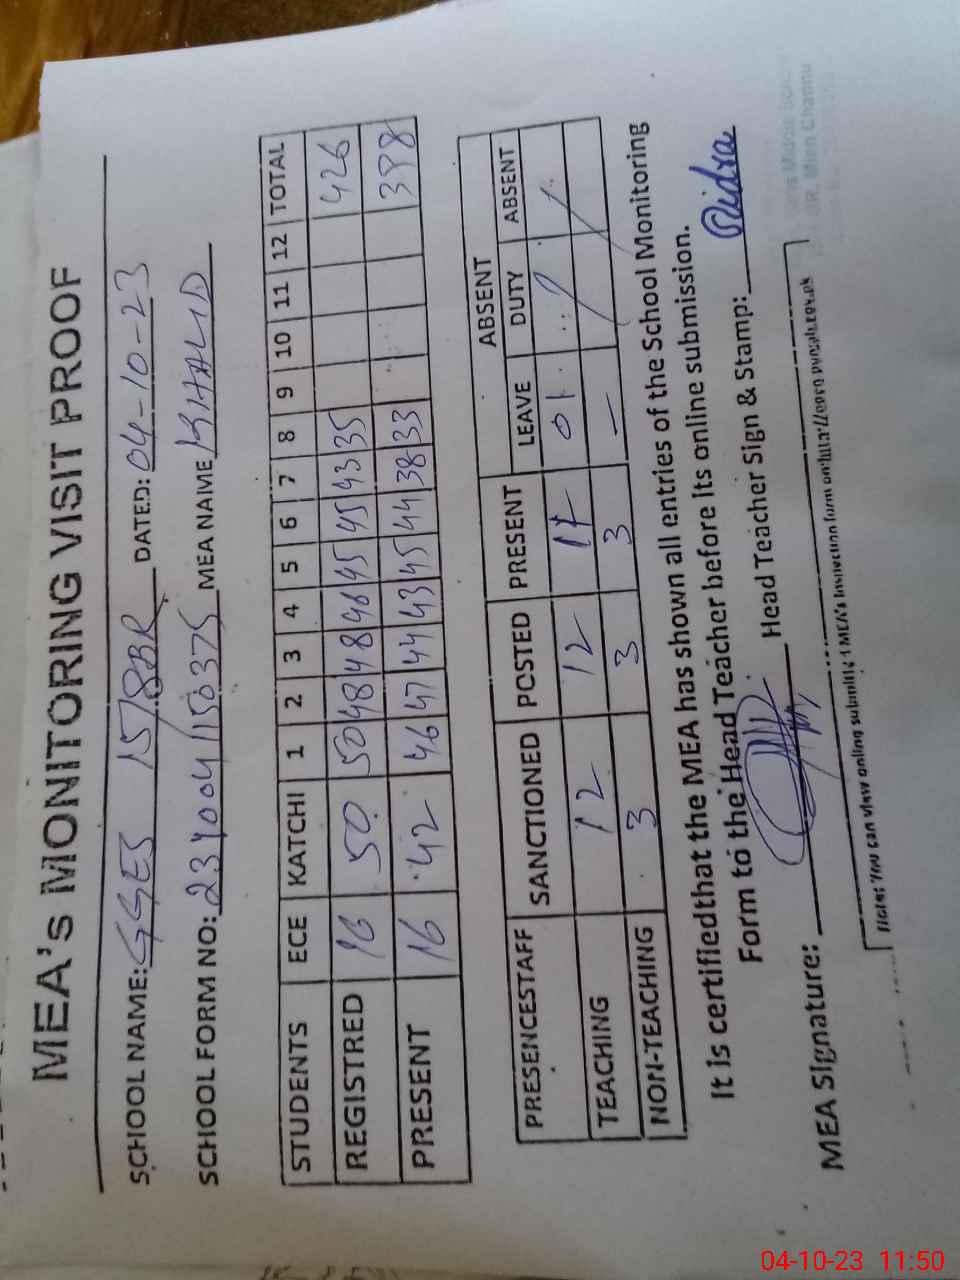 MEA's MONITORING VISIT PROOF
SCHOOL NAME: GGES 157BR DATED: 04-10-23
SCHOOL FORM NO: MEA NAME KHALID
STUDENTS ECE KATCHI 1 2 3 4 5 6 7 8 9 10 11 12 TOTAL
REGISTRED 16 50 50 48 48 46 45 45 43 35 426
PRESENT 16 42 46 47 44 43 45 44 38 33 398
ABSENT
PRESENCESTAFF SANCTIONED POSTED PRESENT LEAVE DUTY ABSENT
TEACHING 12 12 11 01
NON-TEACHING 3 3 3 —
It is certified that the MEA has shown all entries of the School Monitoring
Form to the Head Teacher before its online submission.
MEA Signature: Head Teacher Sign & Stamp:
Note: You can view online submitted MEA's Inspection form on
04-10-23 11:50